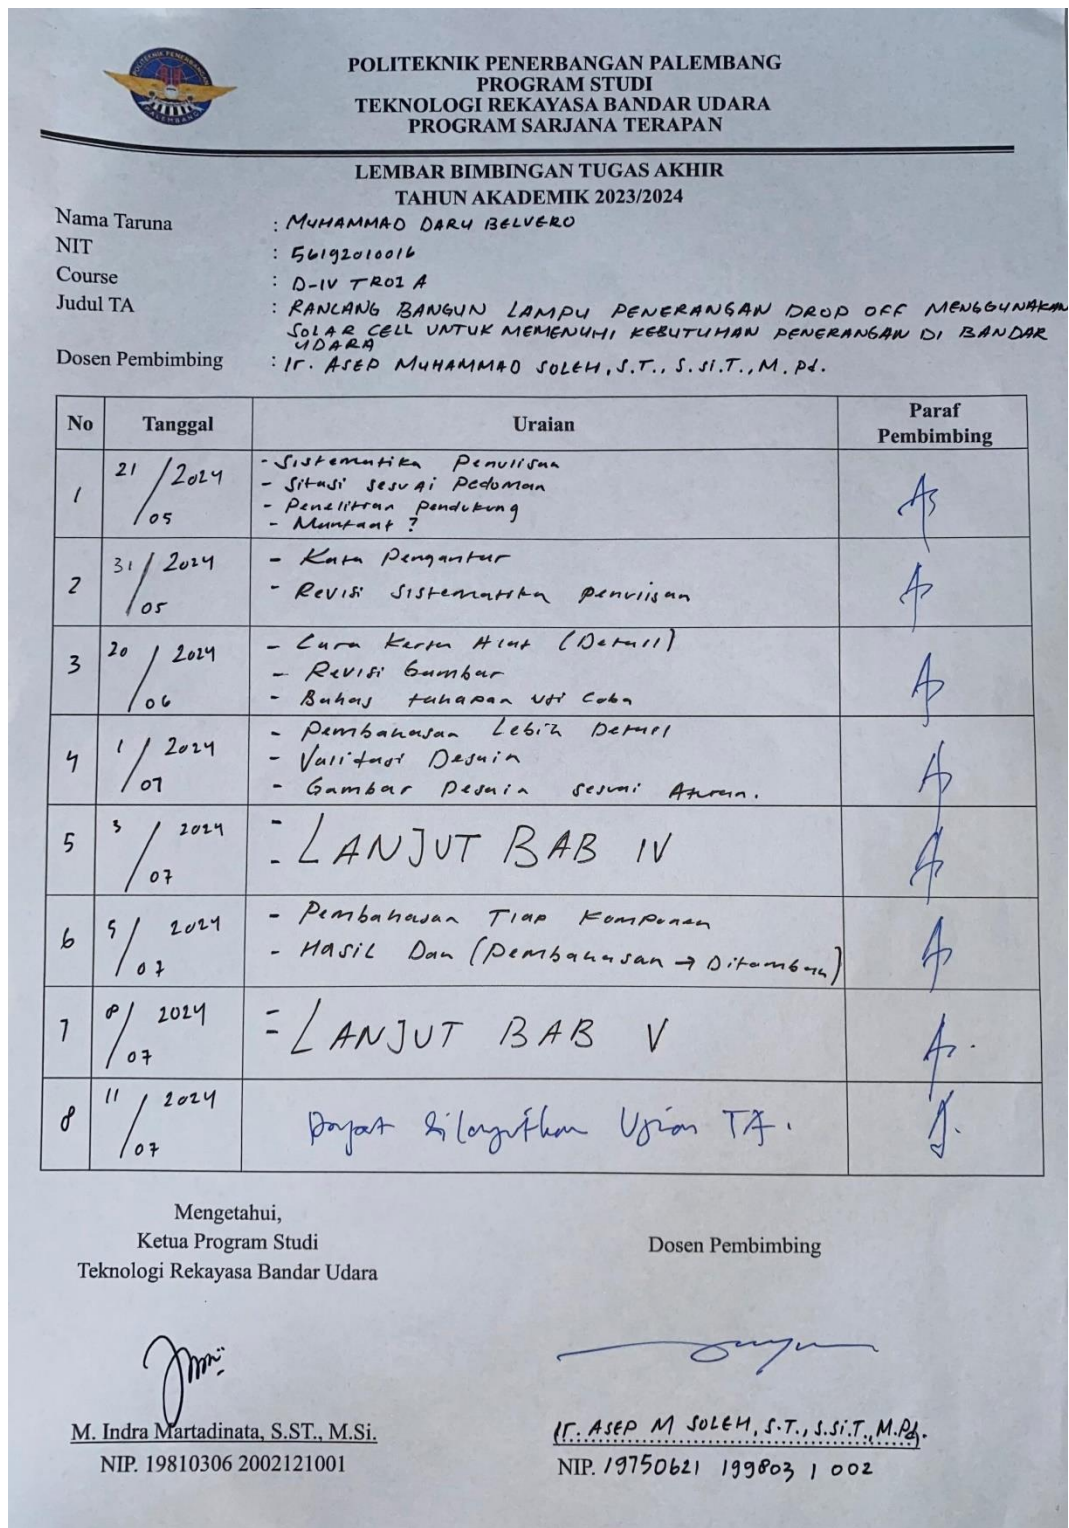 POLITEKNIK PENERBANGAN PALEMBANG
PROGRAM STUDI
TEKNOLOGI REKAYASA BANDAR UDARA
PROGRAM SARJANA TERAPAN
LEMBAR BIMBINGAN TUGAS AKHIR
TAHUN AKADEMIK 2023/2024
Nama Taruna : MUHAMMAD DARU BELVERO
NIT : 56192010016
Course : D-IV TRBU A
Judul TA : RANCANG BANGUN LAMPU PENERANGAN DROP OFF MENGGUNAKAN
SOLAR CELL UNTUK MEMENUHI KEBUTUHAN PENERANGAN DI BANDAR
UDARA
Dosen Pembimbing : Ir. ASEP MUHAMMAD SOLEH, S.T., S.Si.T., M.Pd.
No Tanggal Uraian Paraf Pembimbing
1 21/05 2024 - Sistematika Penulisan
- Sitasi sesuai Pedoman
- Penelitian pendukung
- Manfaat ?
2 31/05 2024 - Kata Pengantar
- Revisi Sistematika penulisan
3 20/06 2024 - Cara Kerja Alat (Detail)
- Revisi Gambar
- Bahas tahapan uji coba
4 1/07 2024 - Pembahasan Lebih Detail
- Validasi Desain
- Gambar Desain sesuai Aturan.
5 3/07 2024 - LANJUT BAB IV
6 5/07 2024 - Pembahasan Tiap Komponen
- Hasil Dan (Pembahasan → Ditambah)
7 8/07 2024 - LANJUT BAB V
8 11/07 2024 Dapat dilanjutkan Ujian TA.
Mengetahui,
Ketua Program Studi
Teknologi Rekayasa Bandar Udara
Dosen Pembimbing
M. Indra Martadinata, S.ST., M.Si.
NIP. 19810306 2002121001
Ir. ASEP M SOLEH, S.T., S.Si.T., M.Pd.
NIP. 19750621 199803 1 002